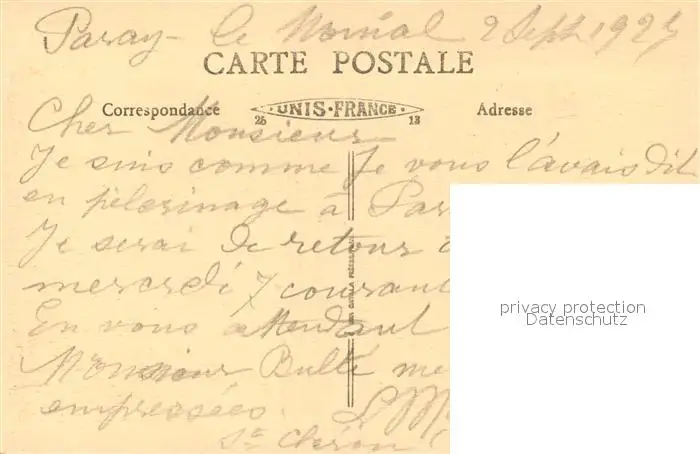 Paray-le Monial 2 Sept 1925
CARTE POSTALE
Correspondance UNIS-FRANCE Adresse
26 13
Cher Monsieur
Je suis comme Je vous l'avais dit
en pèlerinage à Par
Je serai de retour
mercredi 7 courant
En vous attendant
Monsieur Bullé me
empressées.
St Chéron
privacy protection
Datenschutz